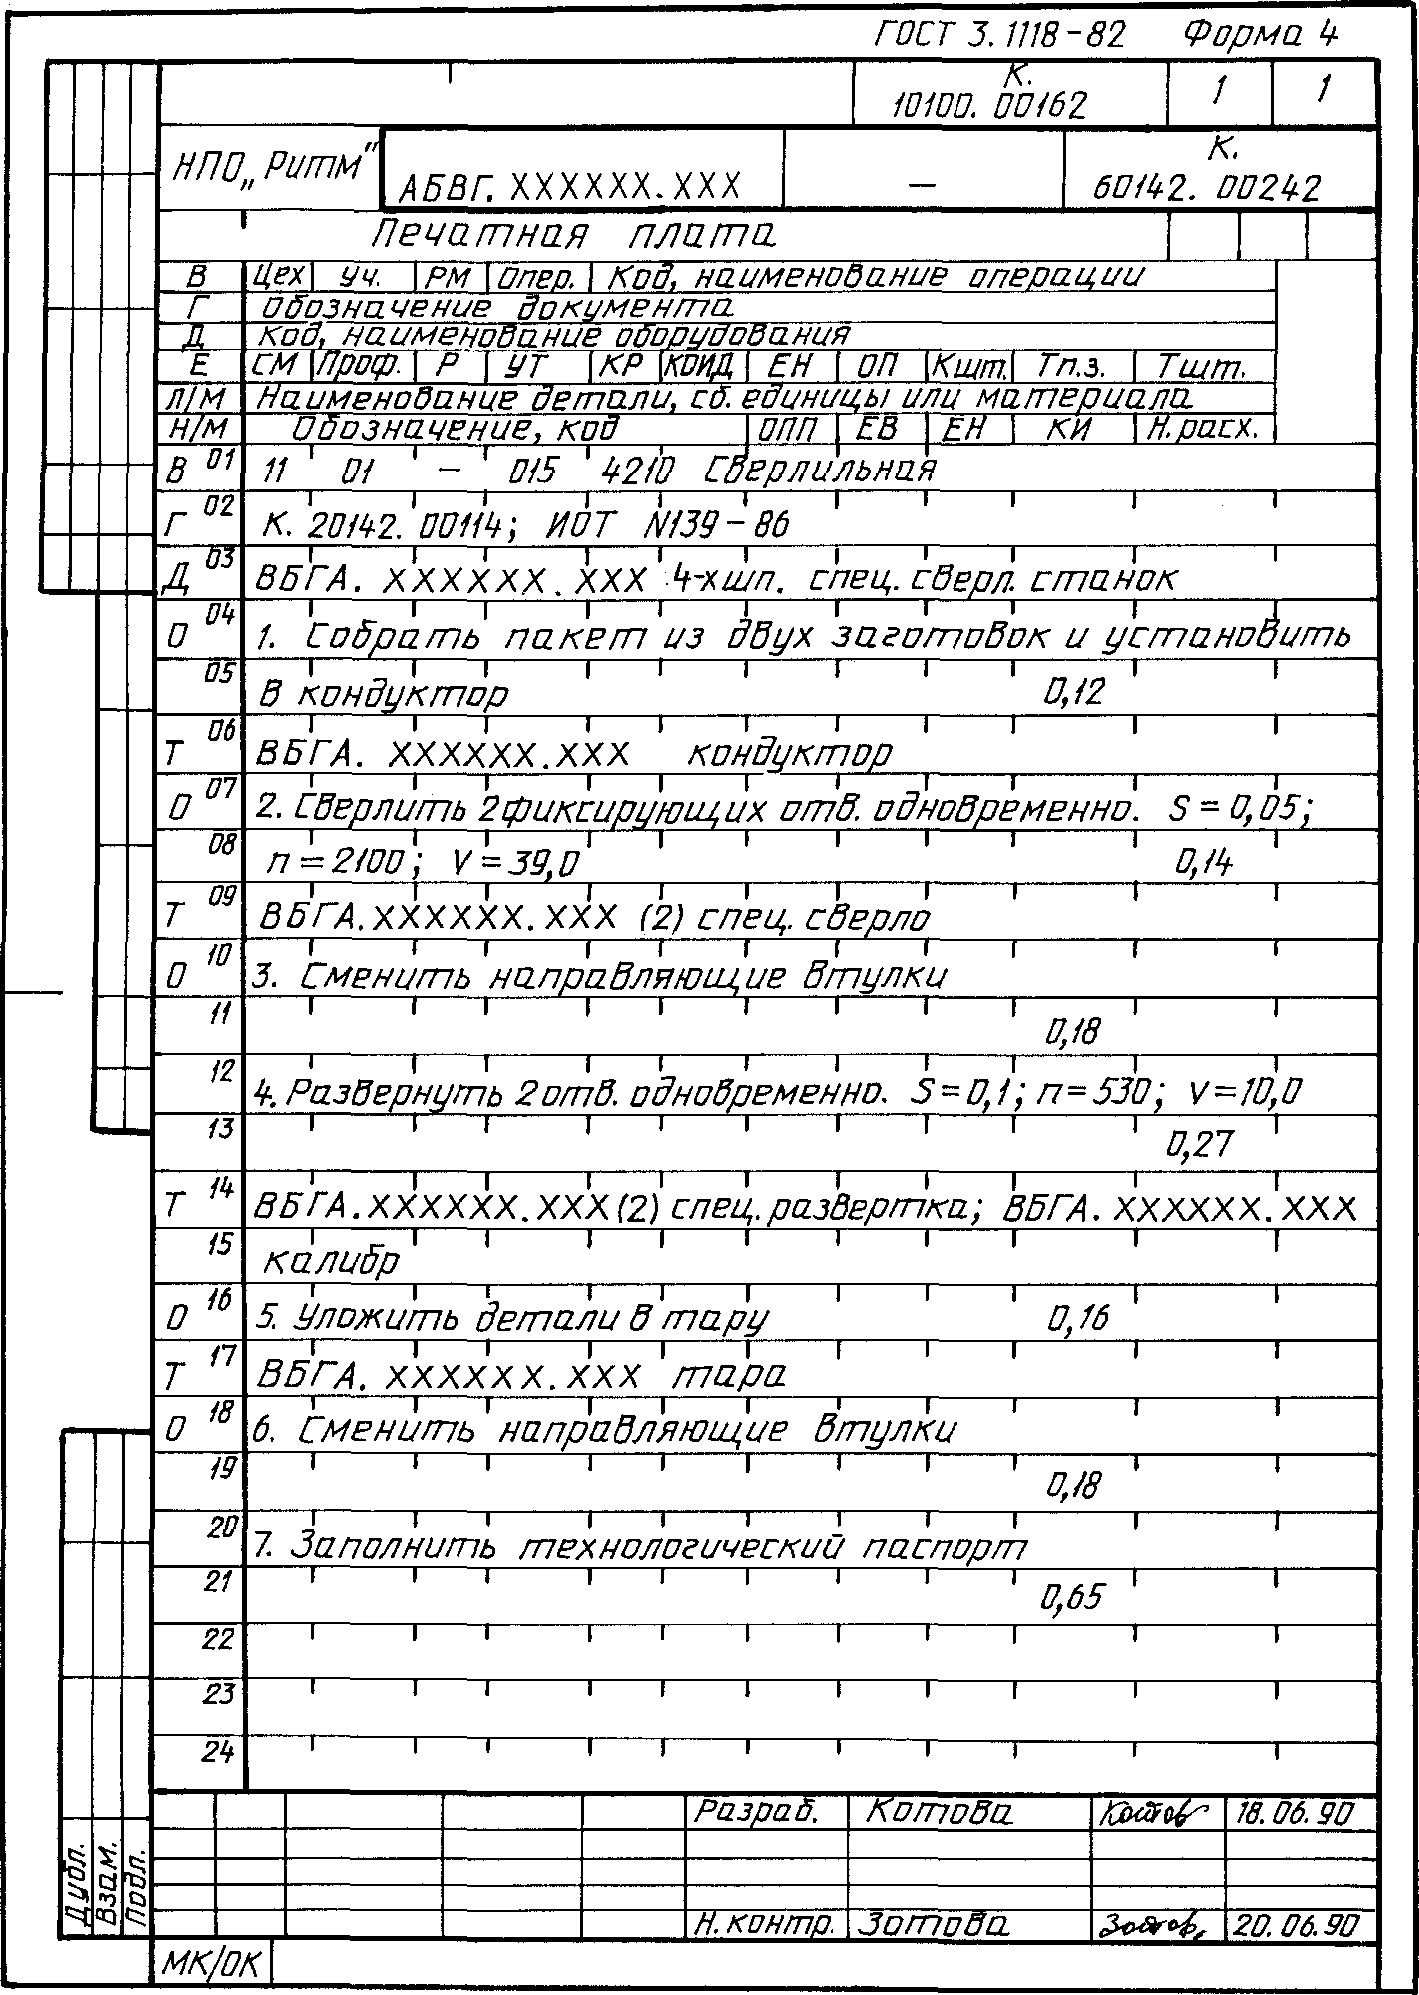 ГОСТ 3.1118-82 Форма 4
К.
10100. 00162 1 1
НПО „Ритм" АБВГ. XXXXXX.XXX — К.
60142. 00242
Печатная плата
В Цех Уч. РМ Опер. Код, наименование операции
Г Обозначение документа
Д Код, наименование оборудования
Е СМ Проф. Р УТ КР КОИД ЕН ОП Кшт. Тп.з. Тшт.
Л/М Наименование детали, сб. единицы или материала
Н/М Обозначение, код ОПП ЕВ ЕН КИ Н.расх.
В 01 11 01 — 015 4210 Сверлильная
Г 02 К. 20142. 00114; ИОТ N139-86
Д 03 ВБГА. XXXXXX. XXX 4-х шп. спец. сверл. станок
О 04 1. Собрать пакет из двух заготовок и установить
05 в кондуктор 0,12
Т 06 ВБГА. XXXXXX.XXX кондуктор
О 07 2. Сверлить 2 фиксирующих отв. одновременно. S = 0,05;
08 n = 2100; V = 39,0 0,14
Т 09 ВБГА.XXXXXX. XXX (2) спец. сверло
О 10 3. Сменить направляющие втулки
11 0,18
12 4. Развернуть 2 отв. одновременно. S = 0,1; n = 530; v = 10,0
13 0,27
Т 14 ВБГА.XXXXXX.XXX (2) спец. развертка; ВБГА. XXXXXX. XXX
15 калибр
О 16 5. Уложить детали в тару 0,16
Т 17 ВБГА. XXXXXX. XXX тара
О 18 6. Сменить направляющие втулки
19 0,18
20 7. Заполнить технологический паспорт
21 0,65
22
23
24
Разраб. Котова Котов 18.06.90
Н.контр. Зотова Зотов 20.06.90
Дубл.
Взам.
Подл.
МК/ОК